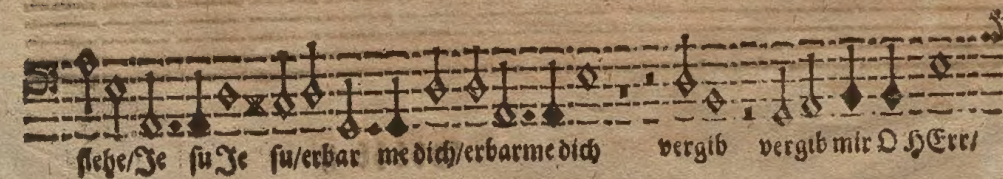 flehe/Je su Je su/erbar me dich/erbarme dich vergib vergib mir O HErr/